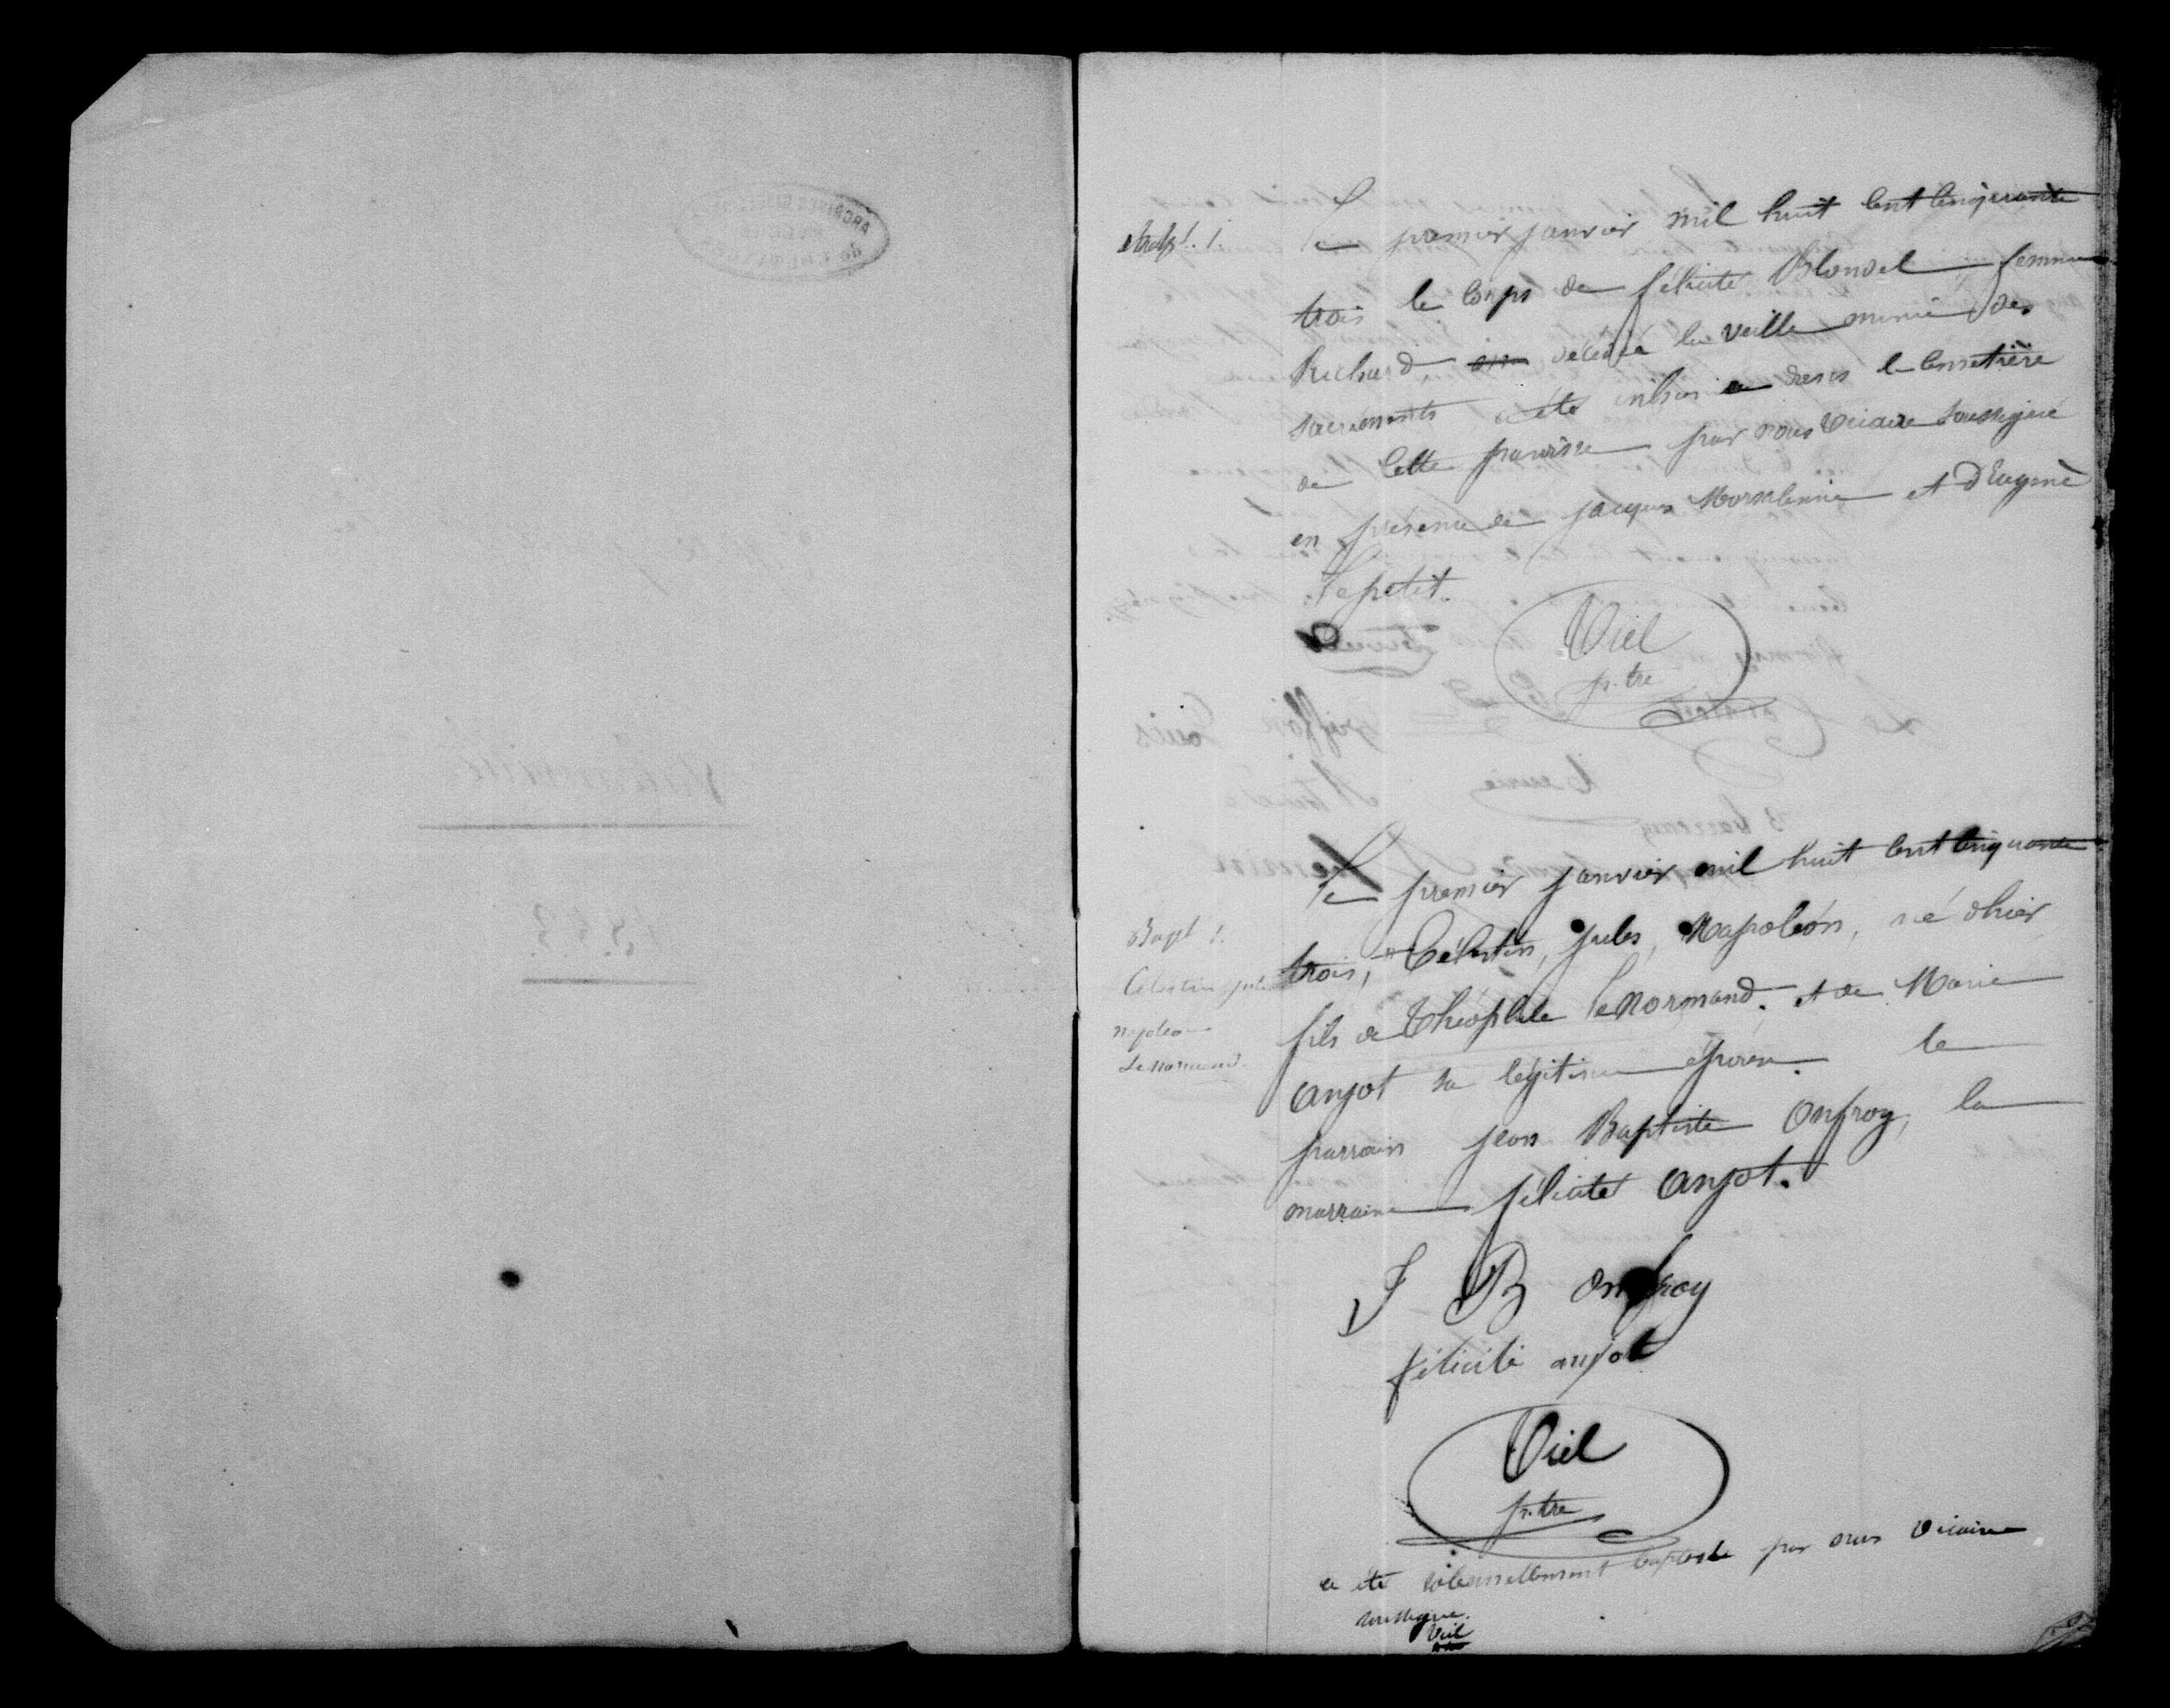 Le premier janvier mil huit cent cinquante
trois le corps de félicité Blondel, femme
Richard, décédée la veille munie des
sacrements a été inhumée dans le cimetière
de cette paroisse par nous vicaire soussigné
en présence de jacques et d'Eugène
Lepetit.
Viel
p.tre
Bapt 1.
Celestin jules
napoleon
Lenormand.
Le premier janvier mil huit cent cinquante
trois, Célestin, jules, Napoléon, né d'hier
fils de Théophile LeNormand. et de Marie
anjot sa légitime épouse. le
parrain jean Baptiste Onfroy, la
marraine félicité anjot.
J B onfroy
félicité anjot
Viel
p.tre
a été solennellement baptisé par nous vicaire
soussigné.
Viel